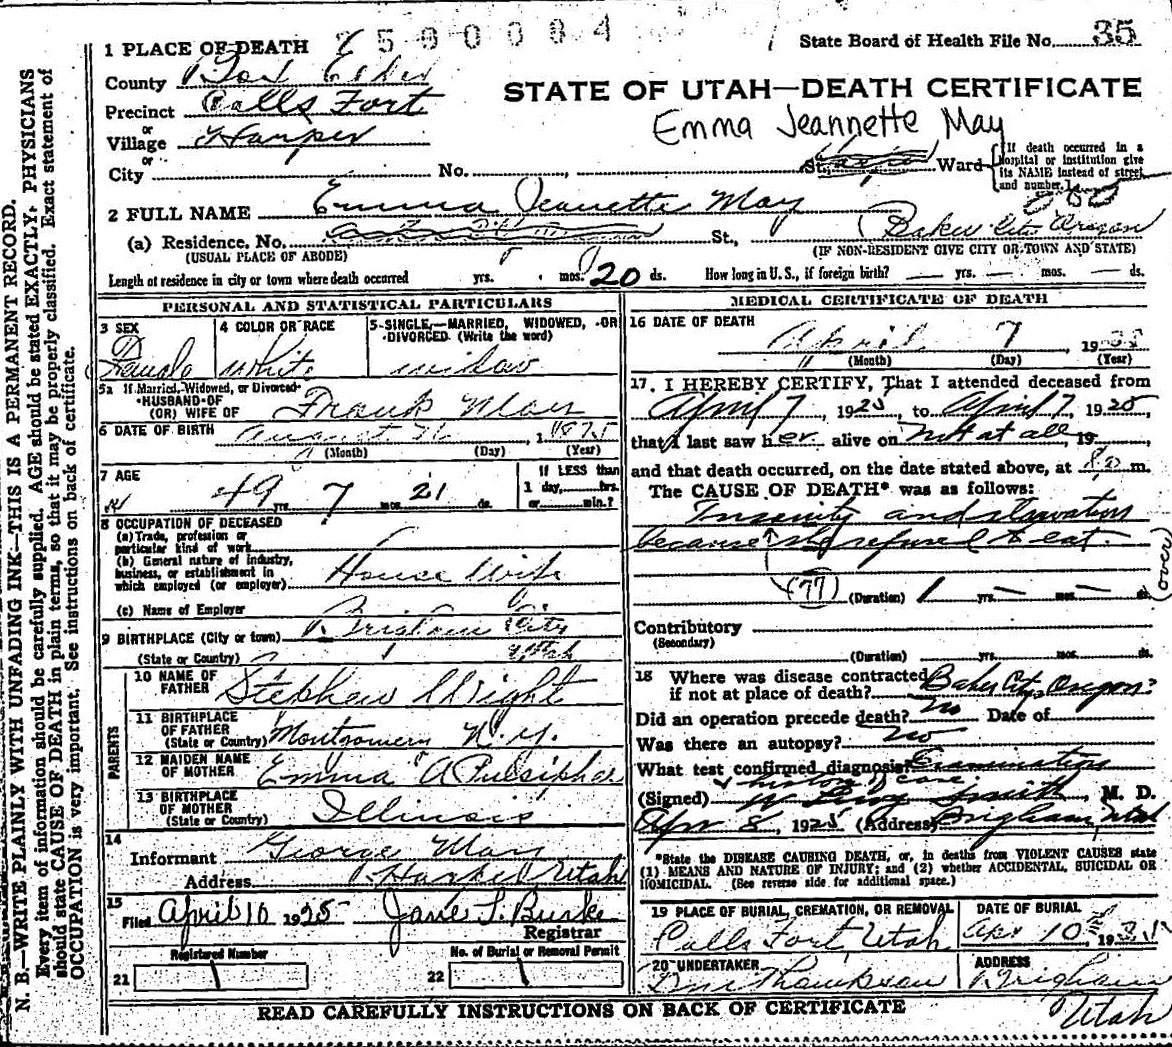 2500084
State Board of Health File No. 35
STATE OF UTAH—DEATH CERTIFICATE
Emma Jeannette May
1 PLACE OF DEATH
County Box Elder
Precinct Calls Fort
or
Village Harper
or
City No. St. Ward
If death occurred in a hospital or institution give its NAME instead of street and number.
2 FULL NAME Emma Jeanette May
(a) Residence. No. St., Baker City Oregon
(USUAL PLACE OF ABODE) (IF NON-RESIDENT GIVE CITY OR TOWN AND STATE)
Length of residence in city or town where death occurred yrs. mos. 20 ds. How long in U. S., if foreign birth? — yrs. — mos. — ds.
PERSONAL AND STATISTICAL PARTICULARS
3 SEX Female
4 COLOR OR RACE White
5-SINGLE,-MARRIED, WIDOWED, -OR DIVORCED. (Write the word) widow
5a If Married, Widowed, or Divorced
HUSBAND OF
(OR) WIFE OF Frank May
6 DATE OF BIRTH August 16, 1875
(Month) (Day) (Year)
7 AGE 49 yrs. 7 mos. 21 ds.
If LESS than
1 day, hrs.
or min.?
8 OCCUPATION OF DECEASED
(a) Trade, profession or
particular kind of work
(b) General nature of industry,
business, or establishment in
which employed (or employer) House Wife
(c) Name of Employer
9 BIRTHPLACE (City or town) Brigham City
(State or Country) Utah
PARENTS
10 NAME OF
FATHER Stephen Wright
11 BIRTHPLACE
OF FATHER
(State or Country) Montgomery N.Y.
12 MAIDEN NAME
OF MOTHER Emma A Pulsipher
13 BIRTHPLACE
OF MOTHER
(State or Country) Illinois
14
Informant George May
Address Harper Utah
15
Filed April 10 1925 Jane S. Burke
Registrar
Registered Number
21
No. of Burial or Removal Permit
22
MEDICAL CERTIFICATE OF DEATH
16 DATE OF DEATH
April 7 19
(Month) (Day) (Year)
17. I HEREBY CERTIFY, That I attended deceased from
April 7, 1925, to April 7, 1925,
that I last saw her alive on Not at all, 19
and that death occurred, on the date stated above, at m.
The CAUSE OF DEATH* was as follows:
Insanity and starvation
because she refused to eat.
(77) (over)
(Duration) 1 yrs. — mos. — ds.
Contributory
(Secondary)
(Duration) yrs. mos. ds.
18 Where was disease contracted
if not at place of death? Baker City, Oregon?
Did an operation precede death? no Date of
Was there an autopsy? no
What test confirmed diagnosis? Examination
& history of case
(Signed) Smith, M. D.
Apr 8, 1925 (Address) Brigham, Utah
*State the DISEASE CAUSING DEATH, or, in deaths from VIOLENT CAUSES state
(1) MEANS AND NATURE OF INJURY; and (2) whether ACCIDENTAL, SUICIDAL OR
HOMICIDAL. (See reverse side for additional space.)
19 PLACE OF BURIAL, CREMATION, OR REMOVAL
Calls Fort Utah
DATE OF BURIAL
Apr 10 19
20 UNDERTAKER
Thompson
ADDRESS
Brigham
Utah
READ CAREFULLY INSTRUCTIONS ON BACK OF CERTIFICATE
N. B.—WRITE PLAINLY WITH UNFADING INK—THIS IS A PERMANENT RECORD.
Every item of information should be carefully supplied. AGE should be stated EXACTLY. PHYSICIANS
should state CAUSE OF DEATH in plain terms, so that it may be properly classified. Exact statement of
OCCUPATION is very important. See instructions on back of certificate.